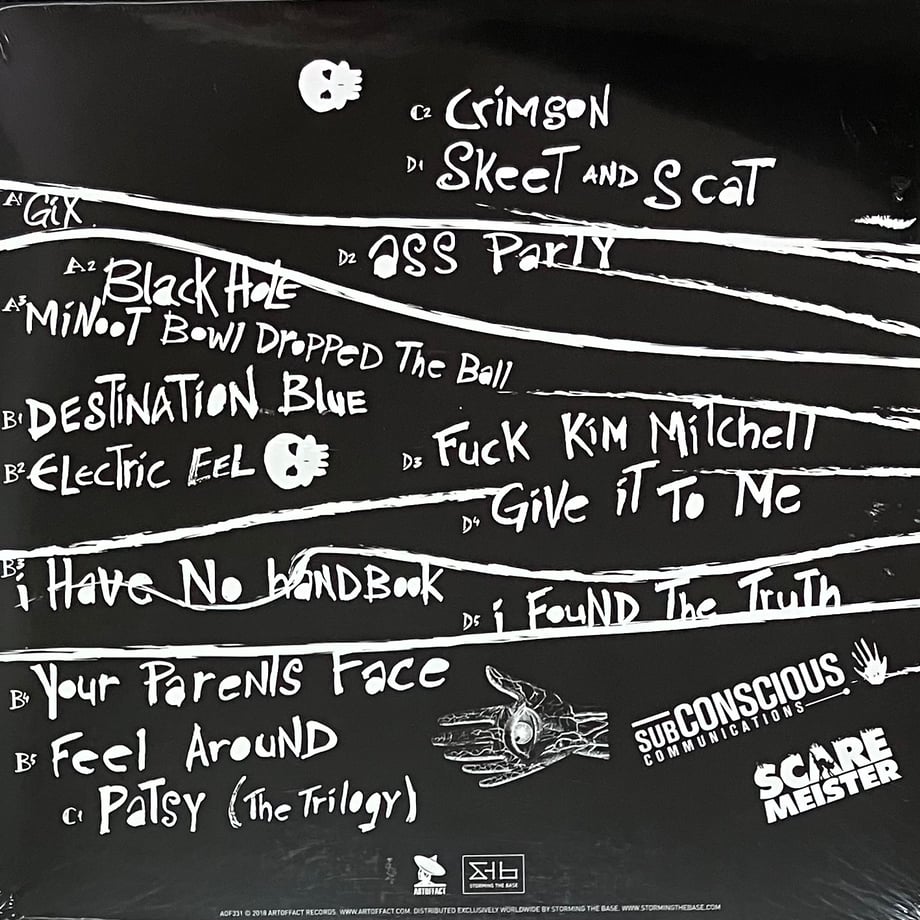 A1 Gix
A2 Black Hole
A3 Minoot Bowl Dropped The Ball
B1 Destination Blue
B2 Electric Eel
B3 i Have No Handbook
B4 Your Parents Face
B5 Feel Around
C1 Patsy (The Trilogy)
C2 Crimson
D1 Skeet and Scat
D2 Ass Party
D3 Fuck Kim Mitchell
D4 Give it To Me
D5 i Found The Truth
SUBCONSCIOUS
COMMUNICATIONS
SCARE
MEISTER
ARTOFFACT
STORMING THE BASE
AOF331 © 2018 ARTOFFACT RECORDS. WWW.ARTOFFACT.COM. DISTRIBUTED EXCLUSIVELY WORLDWIDE BY STORMING THE BASE. WWW.STORMINGTHEBASE.COM